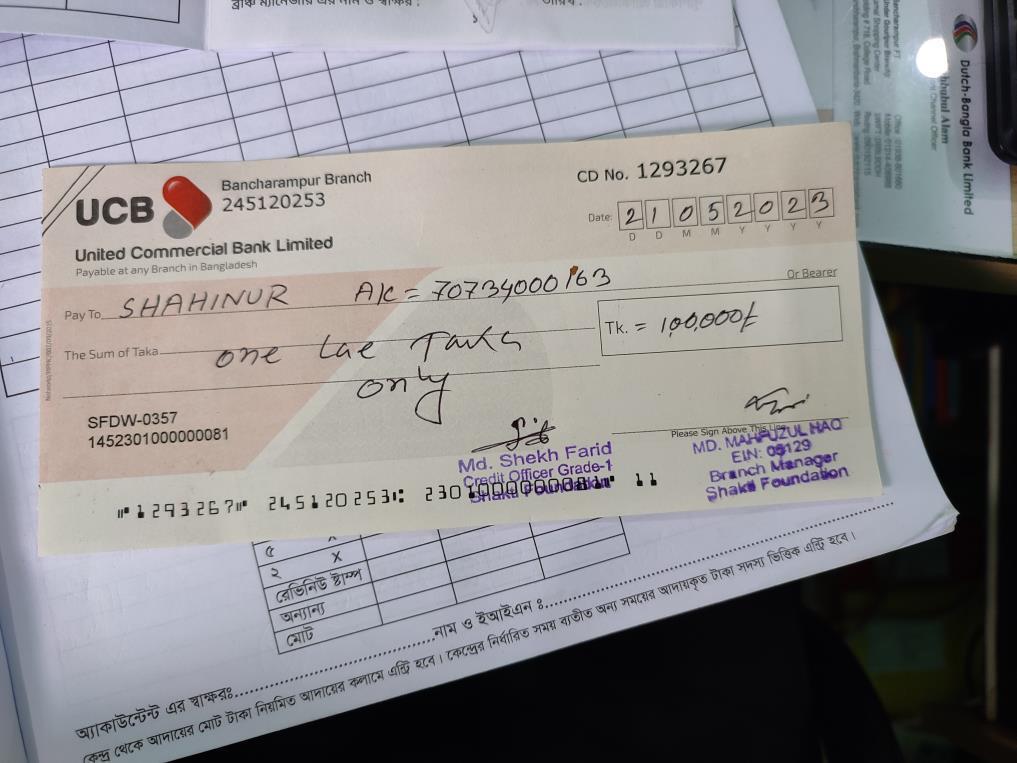 ব্রাঞ্চ ম্যানেজার এর নাম ও স্বাক্ষর :
তারিখ :
Dutch-Bangla Bank Limited
UCB
Bancharampur Branch
245120253
CD No. 1293267
United Commercial Bank Limited
Payable at any Branch in Bangladesh
Date: 21052023
D D M M Y Y Y Y
Pay To SHAHINUR A/C = 70734000163 Or Bearer
The Sum of Taka one lac Taka
only
Tk. = 1,00,000/-
SFDW-0357
1452301000000081
Md. Shekh Farid
Credit Officer Grade-1
Shakti Foundation
Please Sign Above This Line
MD. MAHFUZUL HAQ
EIN:
Branch Manager
Shakti Foundation
⑈1293267⑈ 245120253⑆ 2301000000081⑈ 11
৫
২ X
রেভিনিউ স্ট্যাম্প
অন্যান্য
মোট
অ্যাকাউন্টেন্ট এর স্বাক্ষরঃ
নাম ও ইআইএন ঃ
কেন্দ্র থেকে আদায়ের মোট টাকা নিয়মিত আদায়ের কলামে এন্ট্রি হবে। কেন্দ্রের নির্ধারিত সময় ব্যতীত অন্য সময়ের আদায়কৃত টাকা সদস্য ভিত্তিক এন্ট্রি হবে।